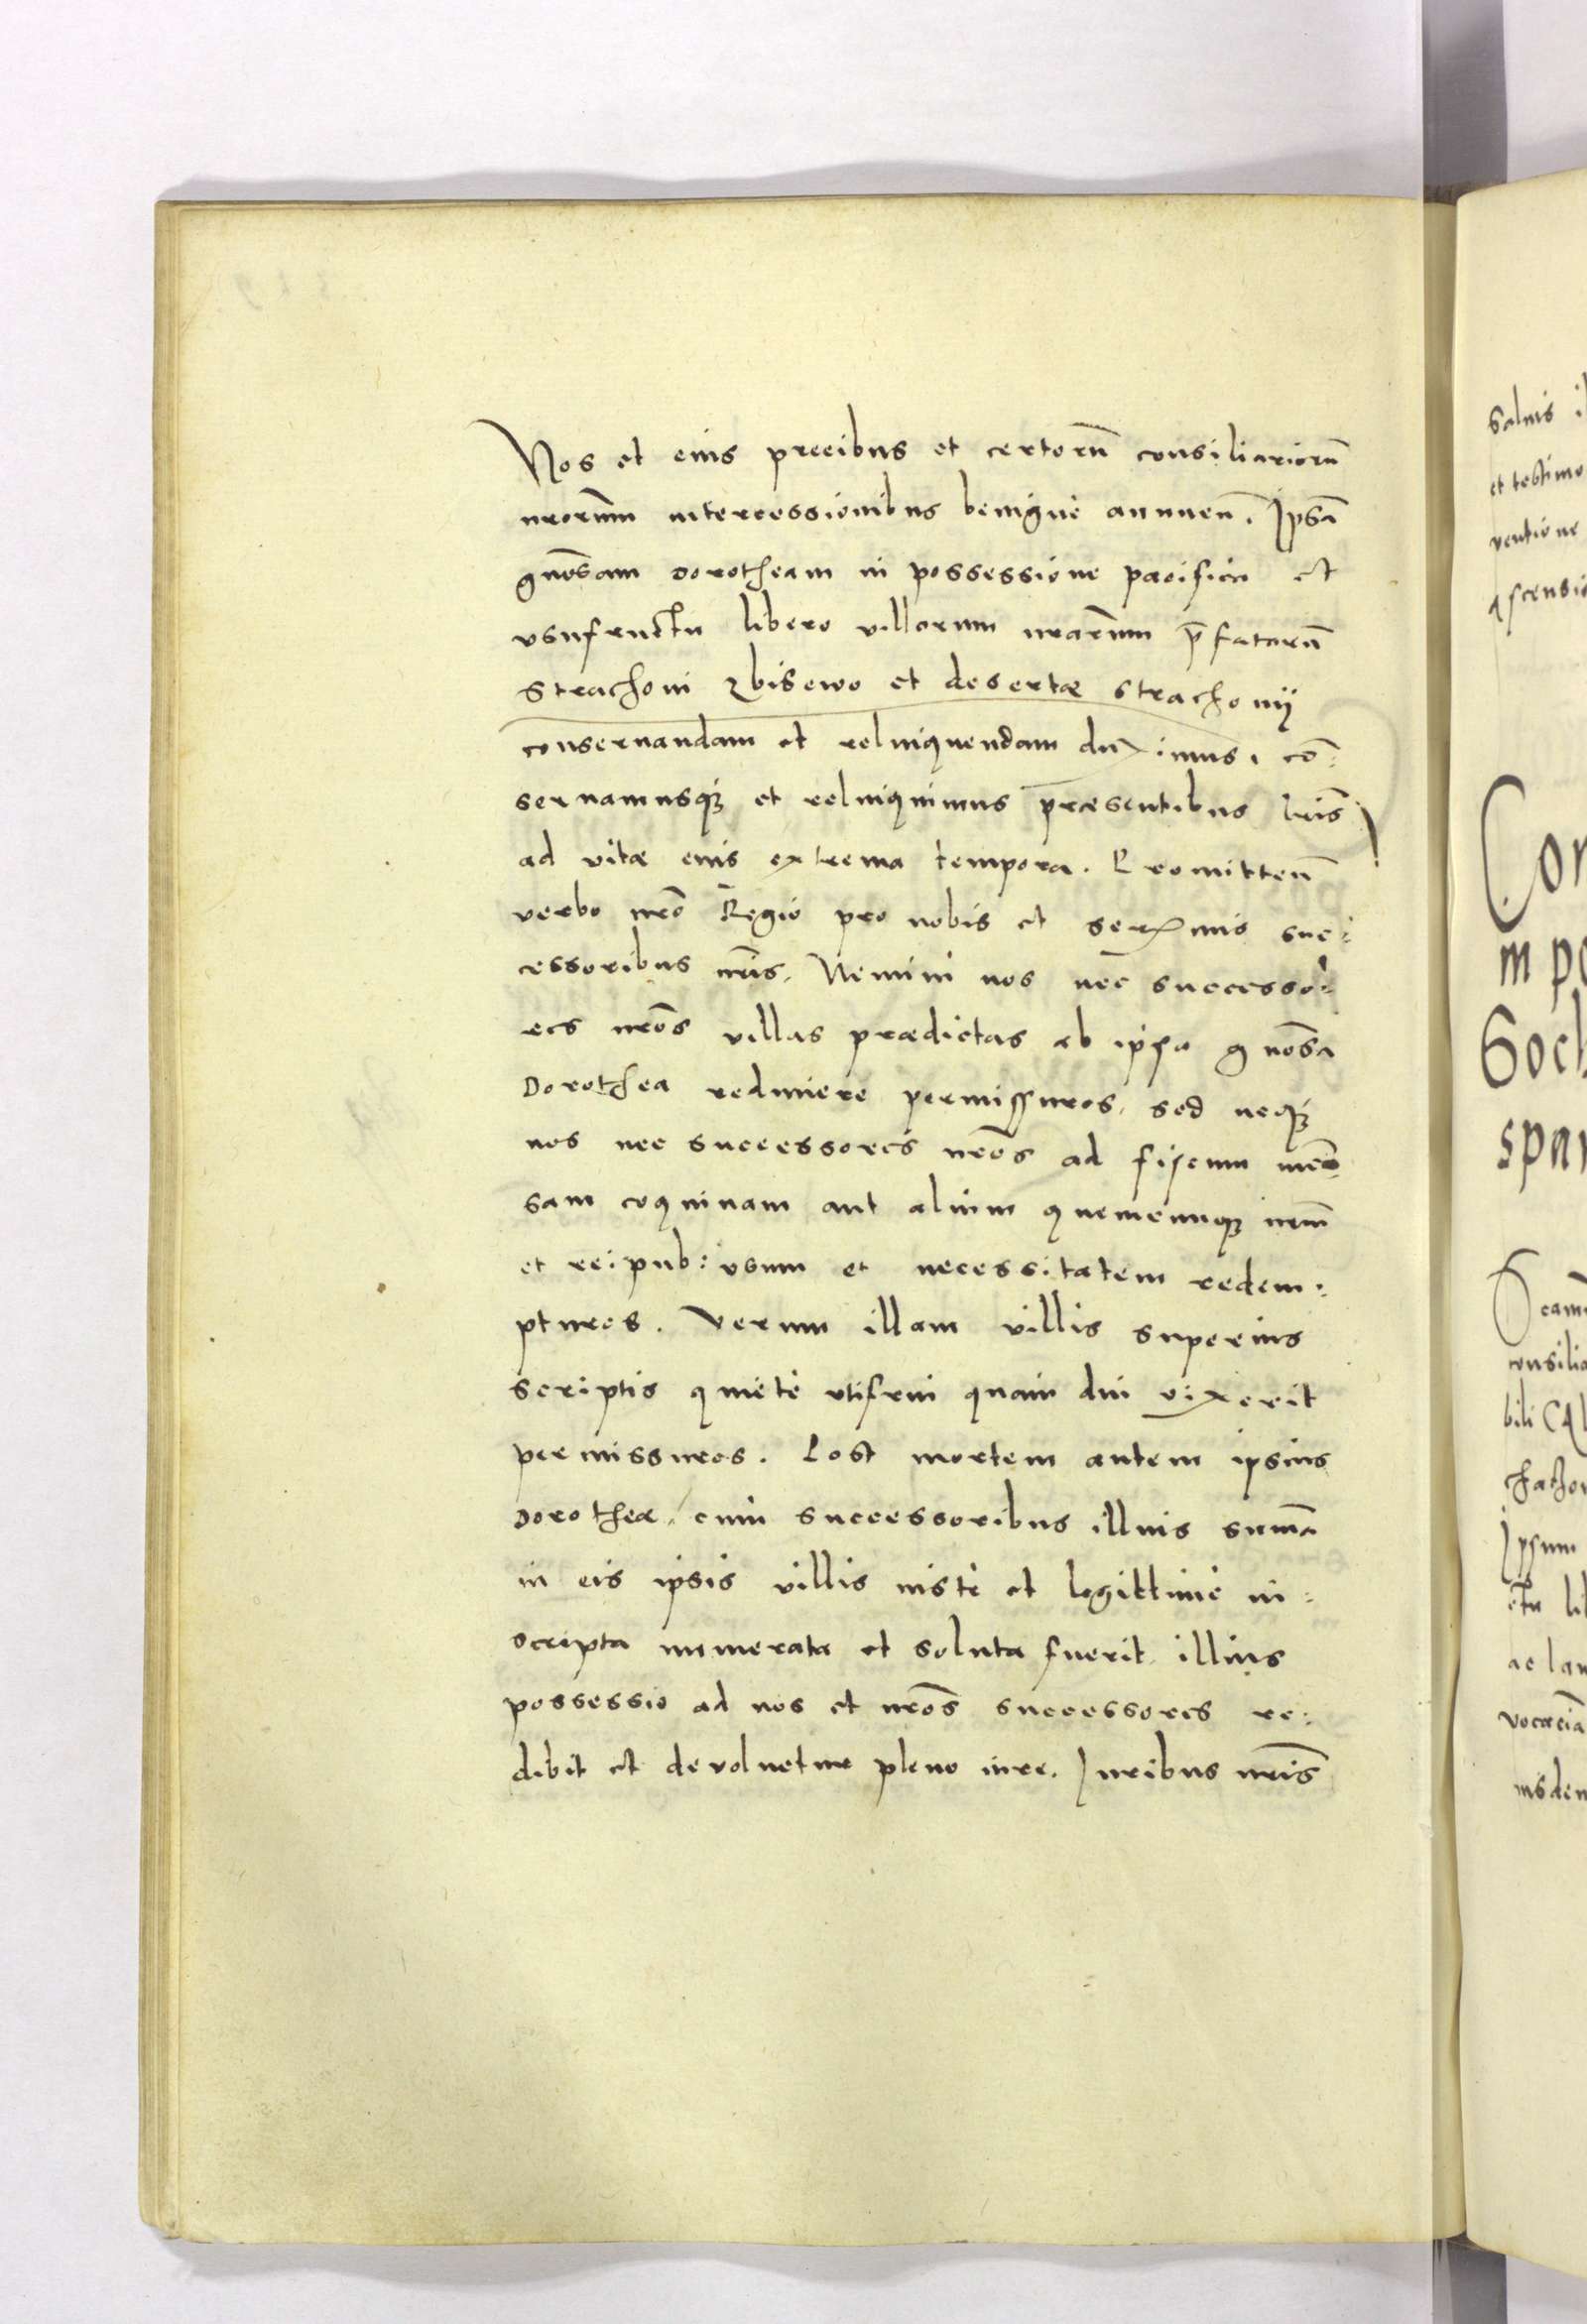 Nos et eius precibus et certorū consiliariorū
nrorum̄ intercessionibus benigne annuen̄. Ipsā
gnōsam Dorotheam in possessione pacifica et
vsufructu libero villarum nrarum̄ p̄fatarū
Strachoni Zbisewo et desertæ strachonij
conseruandam et relinquendam duximus. cō:
seruamusq3 et relinquimus præsentibus lris̄
ad vitæ eius extrema tempora. Promitten̄
verbo nrō Regio pro nobis et serxmis suc:
cessoribus nris̄. Nemini nos nec successo:
res nrōs villas prædictas ab ipsa gnōsa
Dorothea redimere permissuros. sed neq3
nos nec successores nrōs ad fiscum men
sam coquinam aut alium quemcunq3 nrm̄
et reipub: vsum et necessitatem redem:
pturos. Verum illam villis superius
scriptis quiete vtifrui quam diu vixerit
permissuros. Post mortem autem ipsius
Dorotheæ, cum successoribus illius sum̄a
in eis ipsis villis iuste et legittime in:
scripta numerata et soluta fuerit illius
possessio ad nos et nrōs successores re:
dibit et deuoluetur pleno iure. Iuribus nris̄
Saluis
et testimo
uentione
Ascensio
Con
m po
Soch
spar
consilia
bili
chathor
Ipsum
ctu lib
ac lau
vocaciā